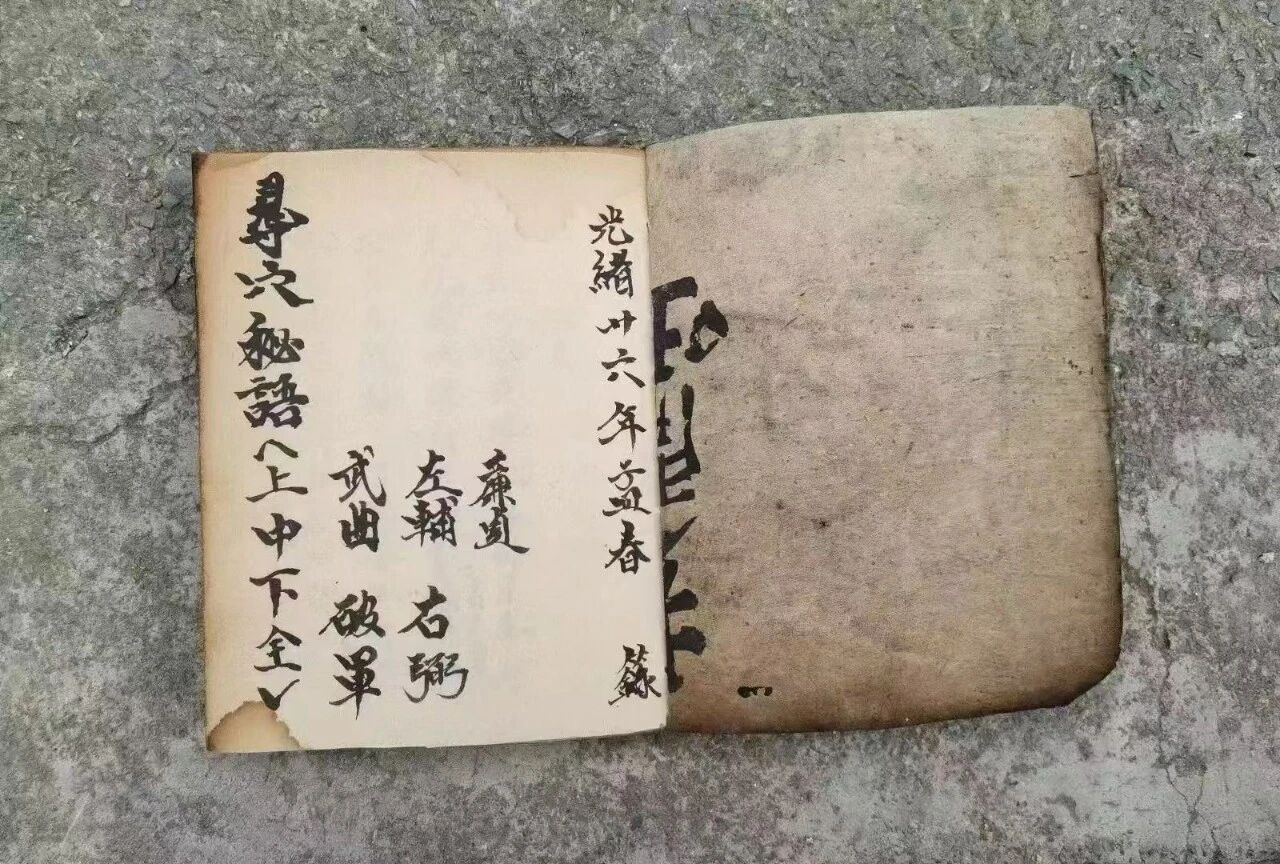 光緒卅六年孟春　籙
廉貞
左輔　右弼
武曲　破軍
尋穴秘語〈上中下全〉